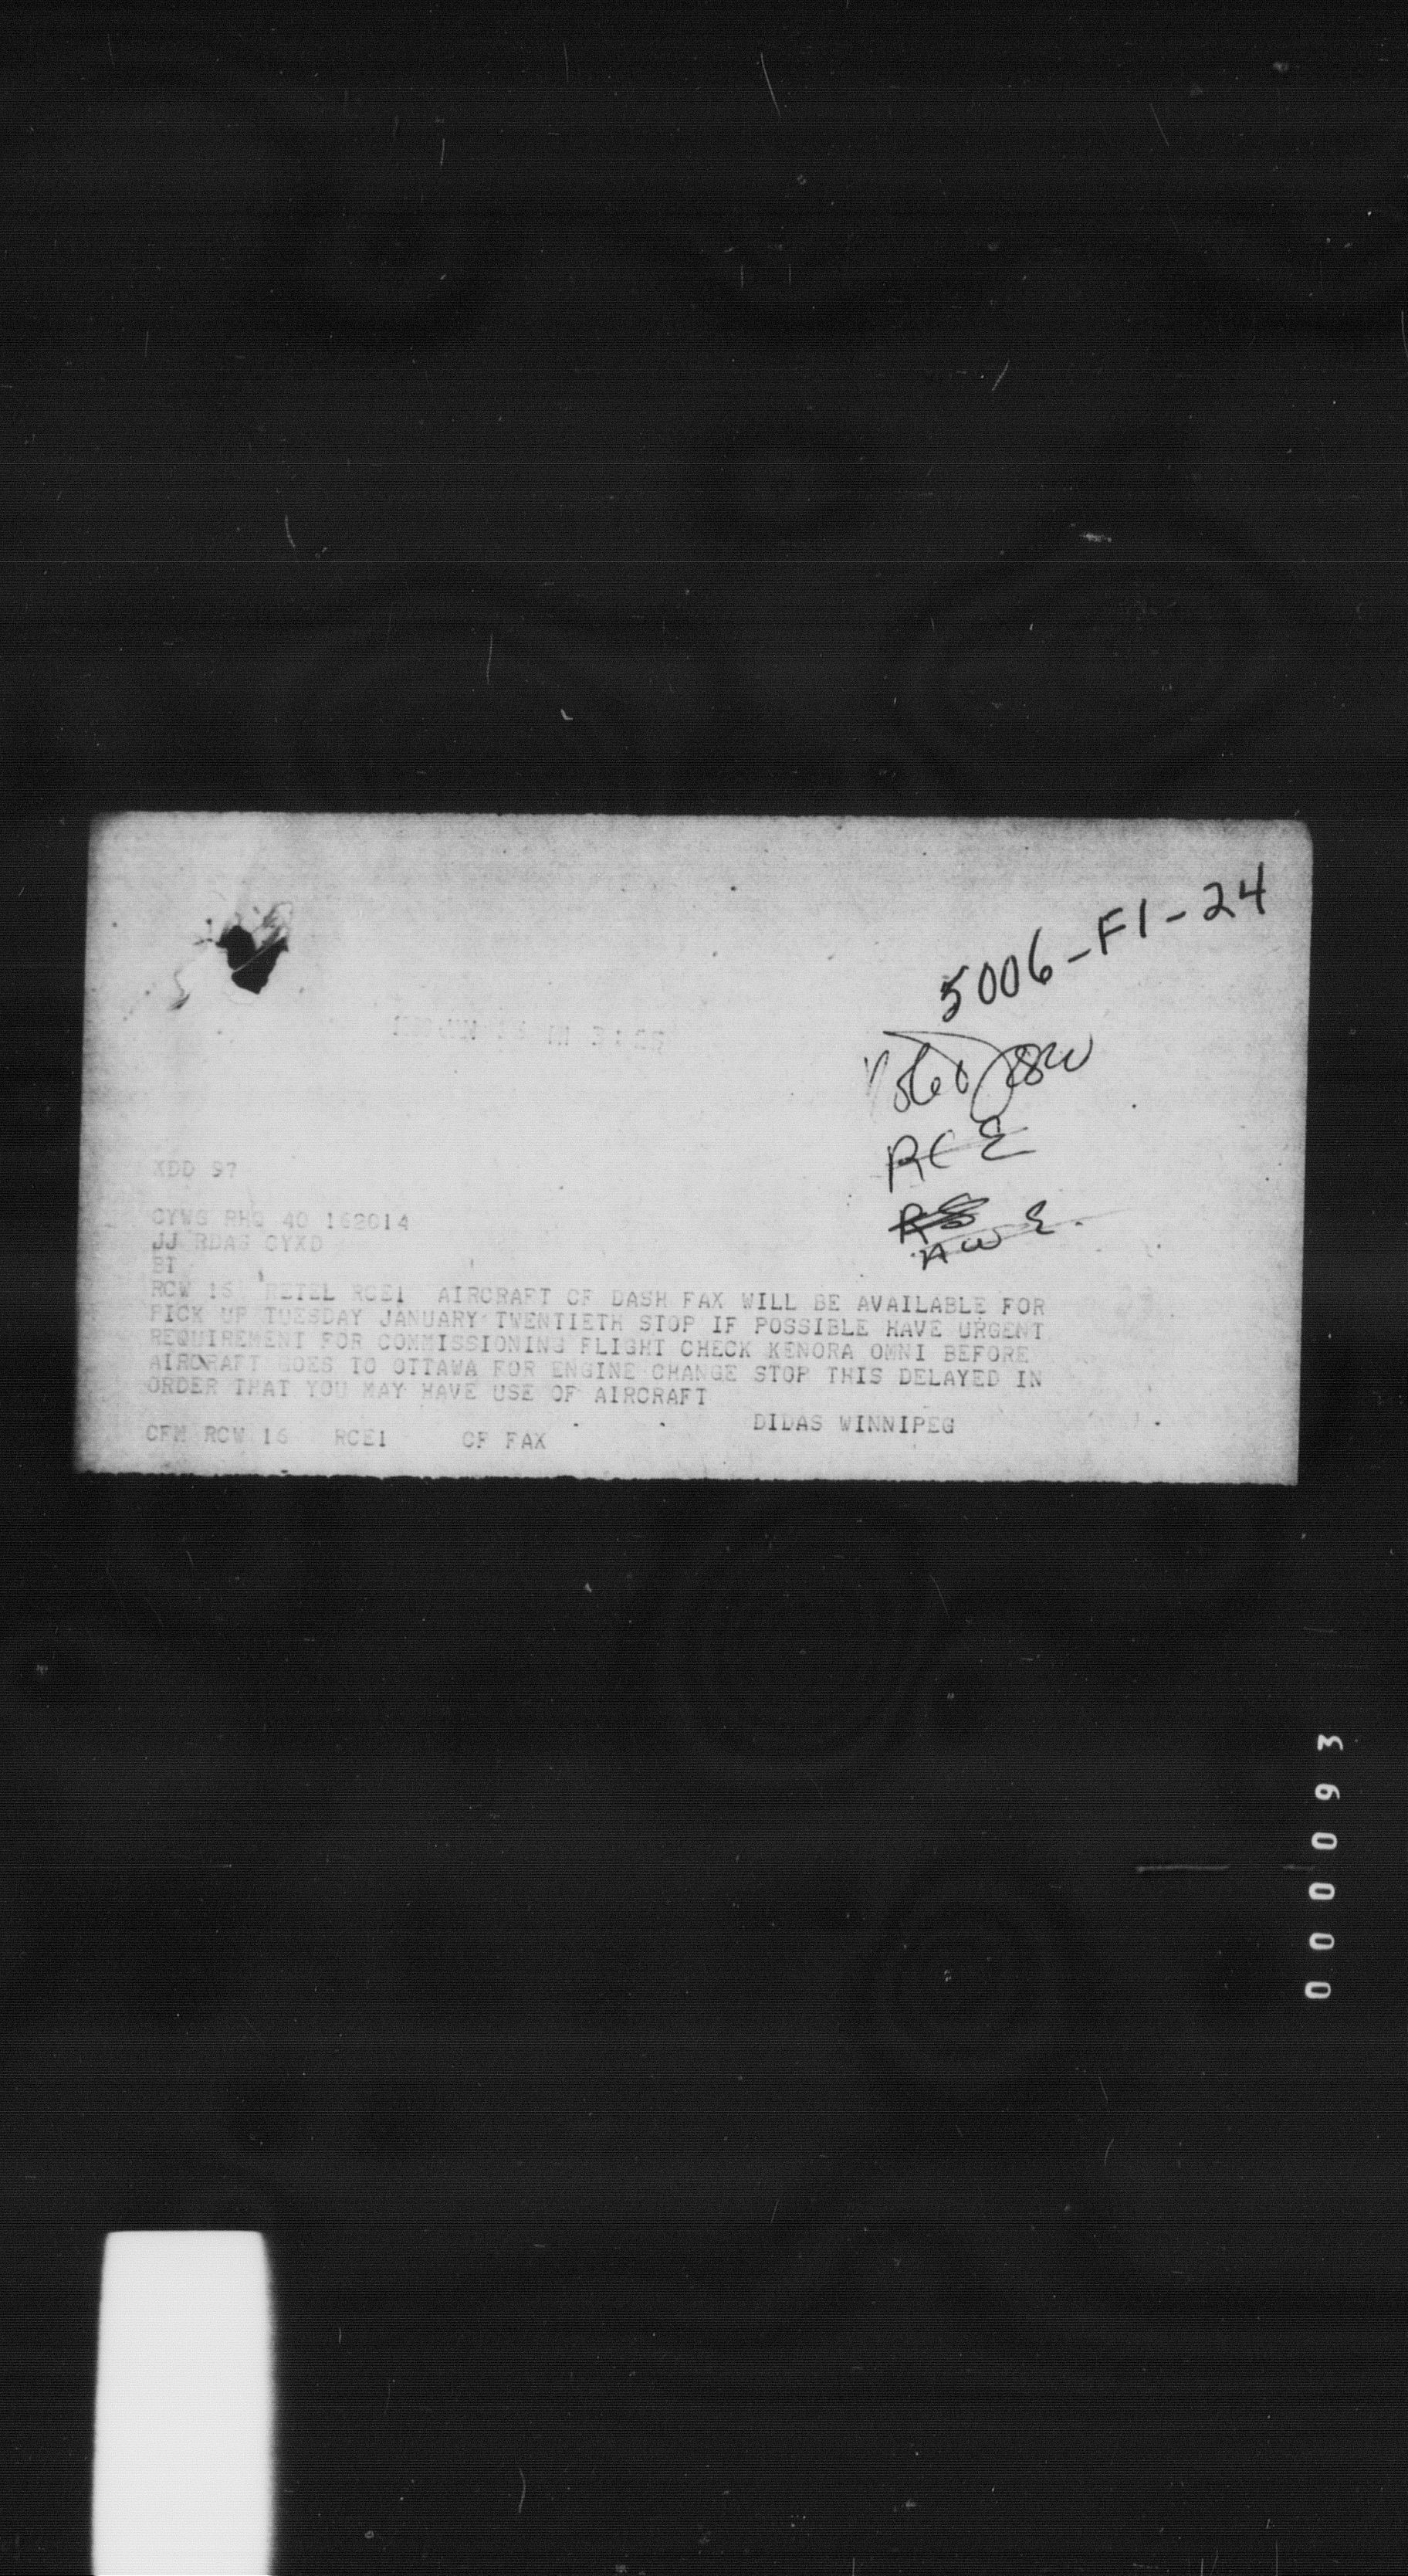 5006-F1-24
RCE
AWE.
XDD 97
CYWG RHQ 40 162014
JJ RDAS CYXD
BT
RCW 16 RETEL RCE1 AIRCRAFT CF DASH FAX WILL BE AVAILABLE FOR
PICK UP TUESDAY JANUARY TWENTIETH STOP IF POSSIBLE HAVE URGENT
REQUIREMENT FOR COMMISSIONING FLIGHT CHECK KENORA OMNI BEFORE
AIRCRAFT GOES TO OTTAWA FOR ENGINE CHANGE STOP THIS DELAYED IN
ORDER THAT YOU MAY HAVE USE OF AIRCRAFT
DIDAS WINNIPEG
CFM RCW 16 RCE1 CF FAX
000093